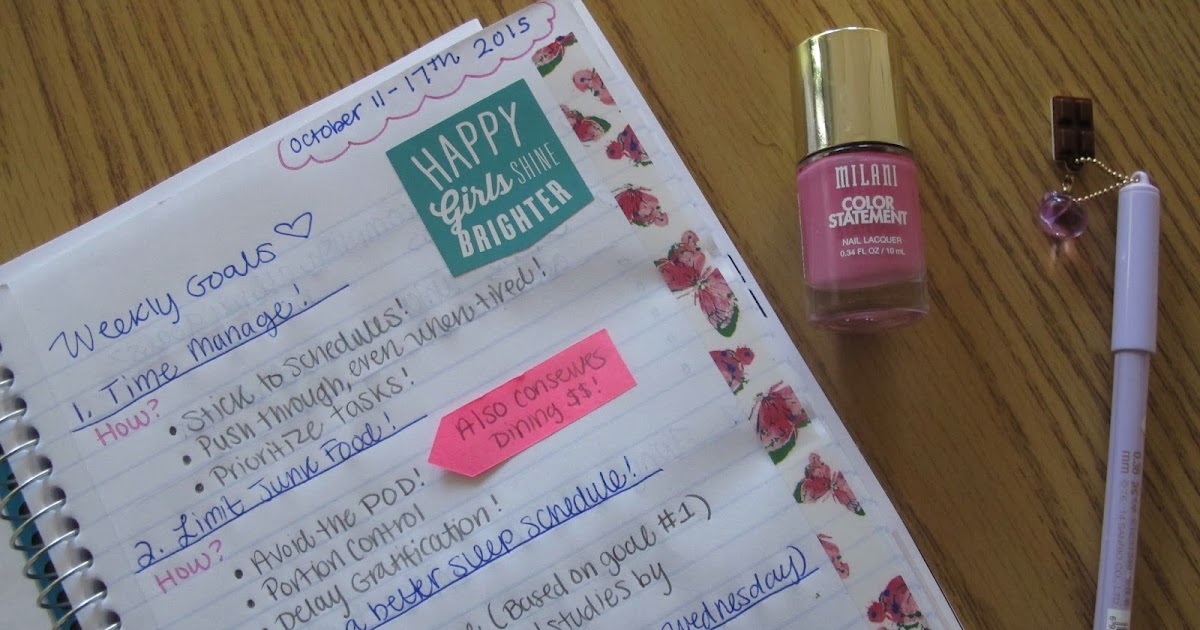 October 11-17th 2015
HAPPY
Girls SHINE
BRIGHTER
Weekly Goals
1. Time manage!
How?
• Stick to schedules!
• Push through, even when tired!
• Prioritize tasks!
2. Limit Junk Food!
Also conserves
Dining $$!
How?
• Avoid the POD!
• Portion Control
Delay Gratification!
a better sleep schedule!
(Based on goal #1)
studies by
Wednesday)
MILANI
COLOR
STATEMENT
NAIL LACQUER
0.34 FL OZ / 10 mL
0.38
mm